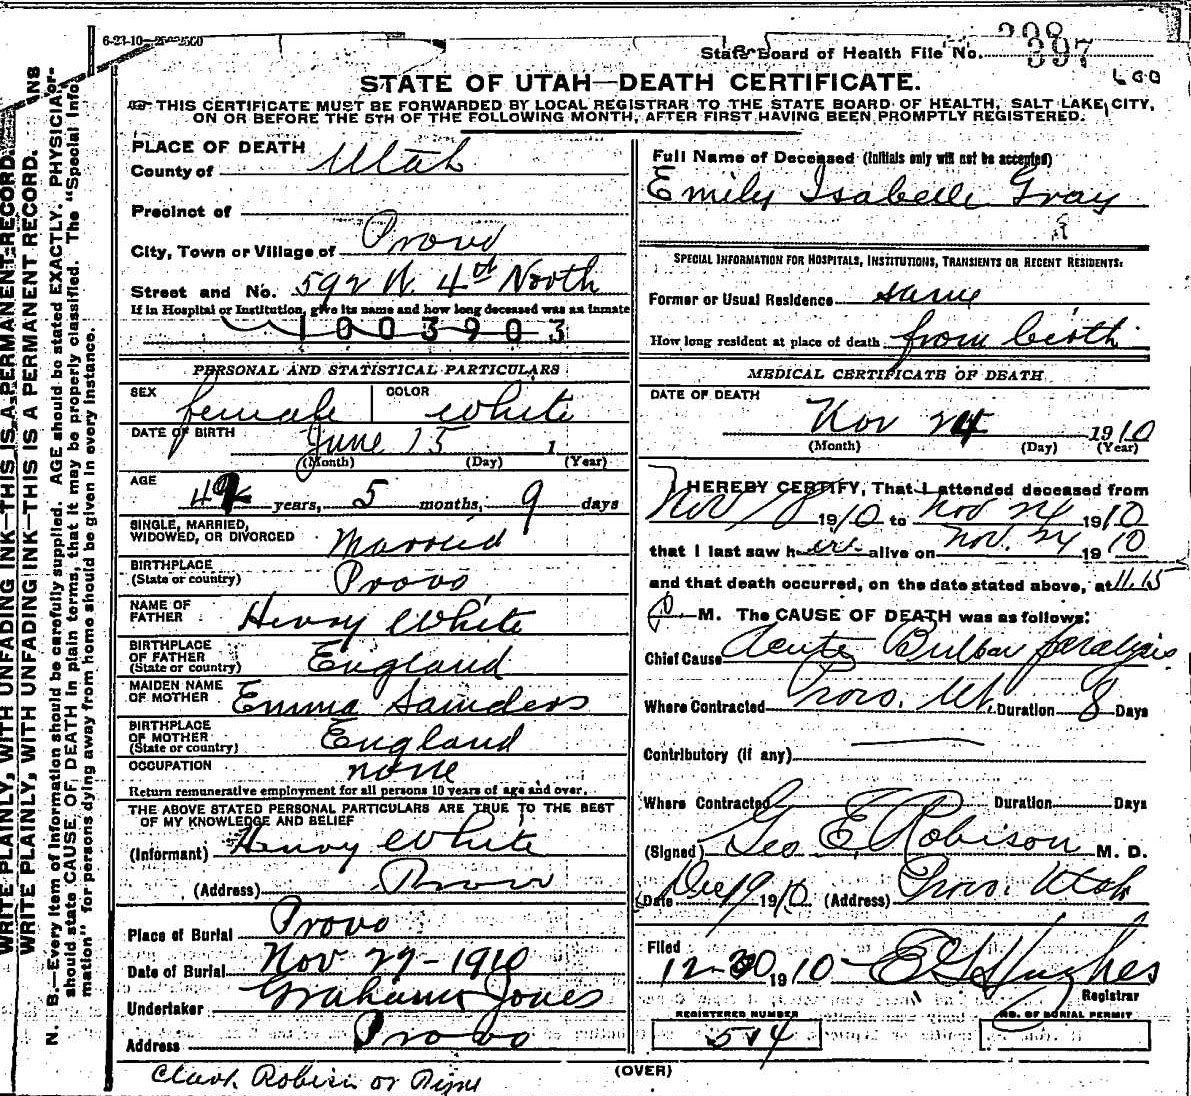 6-23-10—
State Board of Health File No. 397
600
STATE OF UTAH—DEATH CERTIFICATE.
THIS CERTIFICATE MUST BE FORWARDED BY LOCAL REGISTRAR TO THE STATE BOARD OF HEALTH, SALT LAKE CITY,
ON OR BEFORE THE 5TH OF THE FOLLOWING MONTH, AFTER FIRST HAVING BEEN PROMPTLY REGISTERED.
WRITE PLAINLY, WITH UNFADING INK—THIS IS A PERMANENT RECORD.
WRITE PLAINLY, WITH UNFADING INK—THIS IS A PERMANENT RECORD.
N. B.—Every item of information should be carefully supplied. AGE should be stated EXACTLY. PHYSICIANS
should state CAUSE OF DEATH in plain terms, that it may be properly classified. The "Special Infor-
mation" for persons dying away from home should be given in every instance.
PLACE OF DEATH
County of Utah
Precinct of
City, Town or Village of Provo
Street and No. 592 W. 4th North
If in Hospital or Institution, give its name and how long deceased was an inmate
1003903
PERSONAL AND STATISTICAL PARTICULARS
SEX female COLOR White
DATE OF BIRTH June 15 1
(Month) (Day) (Year)
AGE years, 5 months, 9 days
SINGLE, MARRIED,
WIDOWED, OR DIVORCED Married
BIRTHPLACE
(State or country) Provo
NAME OF
FATHER Henry White
BIRTHPLACE
OF FATHER
(State or country) England
MAIDEN NAME
OF MOTHER Emma Saunders
BIRTHPLACE
OF MOTHER
(State or country) England
OCCUPATION none
Return remunerative employment for all persons 10 years of age and over.
THE ABOVE STATED PERSONAL PARTICULARS ARE TRUE TO THE BEST
OF MY KNOWLEDGE AND BELIEF
(Informant) Henry White
(Address) Provo
Place of Burial Provo
Date of Burial Nov 27-1910
Undertaker Graham Jones
Address Provo
Clark Robison or
Full Name of Deceased (Initials only will not be accepted)
Emily Isabelle Gray
SPECIAL INFORMATION FOR HOSPITALS, INSTITUTIONS, TRANSIENTS OR RECENT RESIDENTS:
Former or Usual Residence same
How long resident at place of death from birth
MEDICAL CERTIFICATE OF DEATH
DATE OF DEATH
Nov 24 1910
(Month) (Day) (Year)
I HEREBY CERTIFY, That I attended deceased from
Nov 18 1910 to Nov 24 1910
that I last saw her alive on Nov. 24 1910
and that death occurred, on the date stated above, at 11.15
P M. The CAUSE OF DEATH was as follows:
Chief Cause Acute Bulbar paralysis
Where Contracted Provo. Ut. Duration 8 Days
Contributory (if any)
Where Contracted Duration Days
(Signed) Geo E Robison M. D.
Date Dec 19 1910 (Address) Provo. Utah
Filed
12-20 1910 E G Hughes
Registrar
REGISTERED NUMBER NO. OF BURIAL PERMIT
514
(OVER)